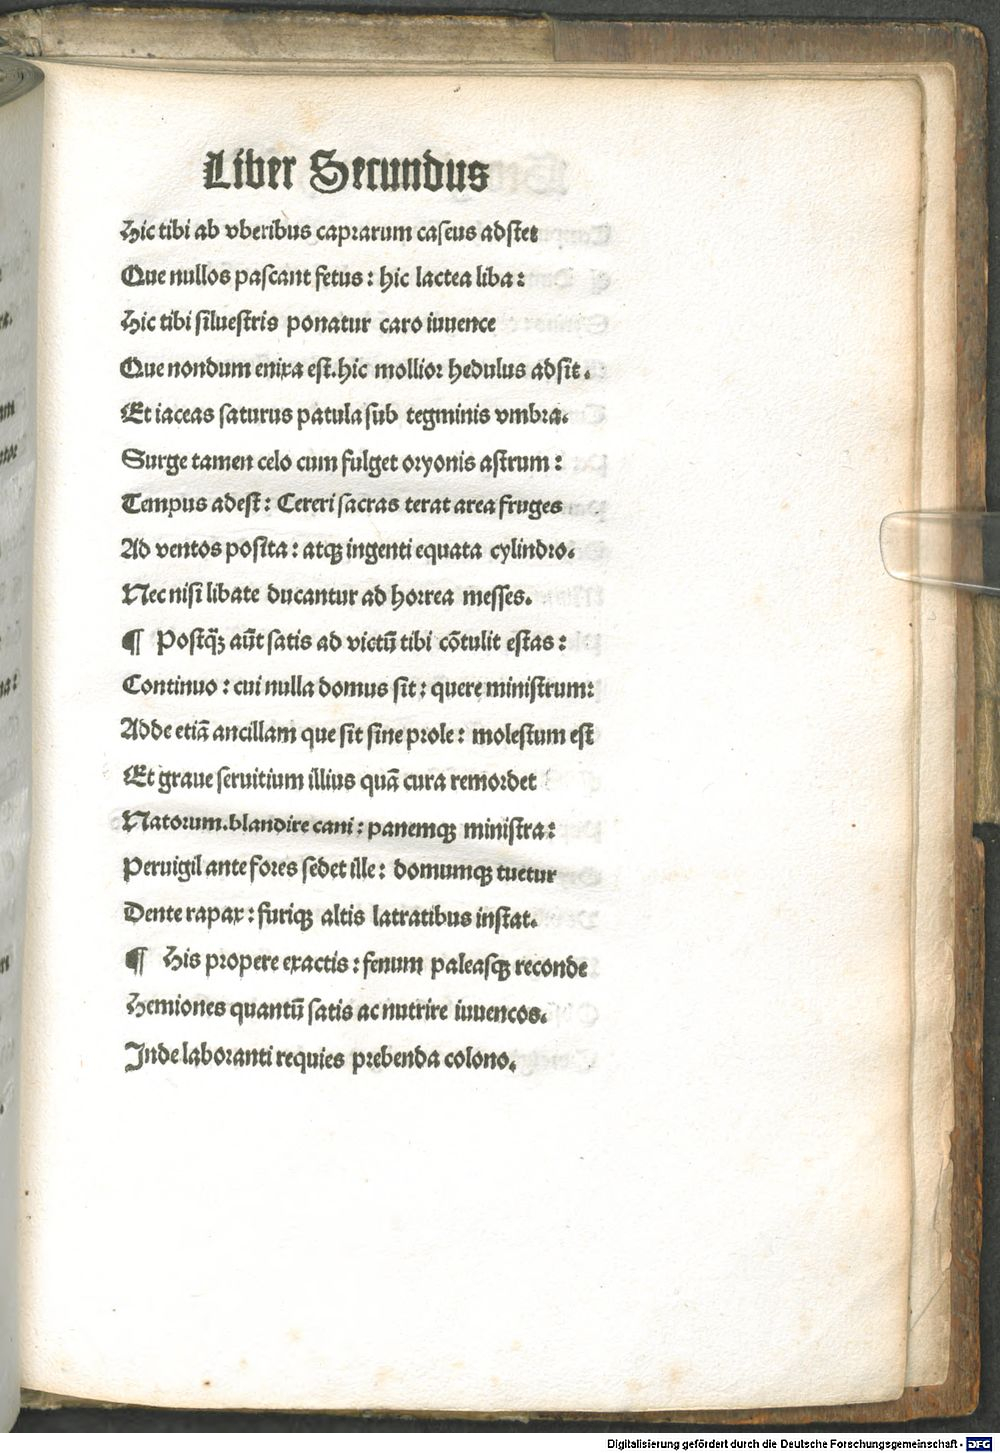 Liber Secundus
Hic tibi ab vberibus caprarum caseus adstet
Que nullos pascant fetus: hic lactea liba:
Hic tibi siluestris ponatur caro iuuence
Que nondum enixa est.hic mollior hedulus adsit.
Et iaceas saturus patula sub tegminis vmbra.
Surge tamen celo cum fulget oryonis astrum:
Tempus adest: Cereri sacras terat area fruges
Ad ventos posita: atqꝫ ingenti equata cylindro.
Nec nisi libate ducantur ad horrea messes.
¶ Postqꝫ̃ aūt satis ad victū tibi cōtulit estas:
Continuo: cui nulla domus sit: quere ministrum:
Adde etiā ancillam que sit sine prole: molestum est
Et graue seruitium illius quā cura remordet
Natorum.blandire cani: panemqꝫ ministra:
Peruigil ante fores sedet ille: domumqꝫ tuetur
Dente rapax: furiqꝫ altis latratibus instat.
¶ His propere exactis: fenum paleasqꝫ reconde
Hemiones quantū satis ac nutrire iuuencos.
Inde laboranti requies prebenda colono.
Digitalisierung gefördert durch die Deutsche Forschungsgemeinschaft - DFG